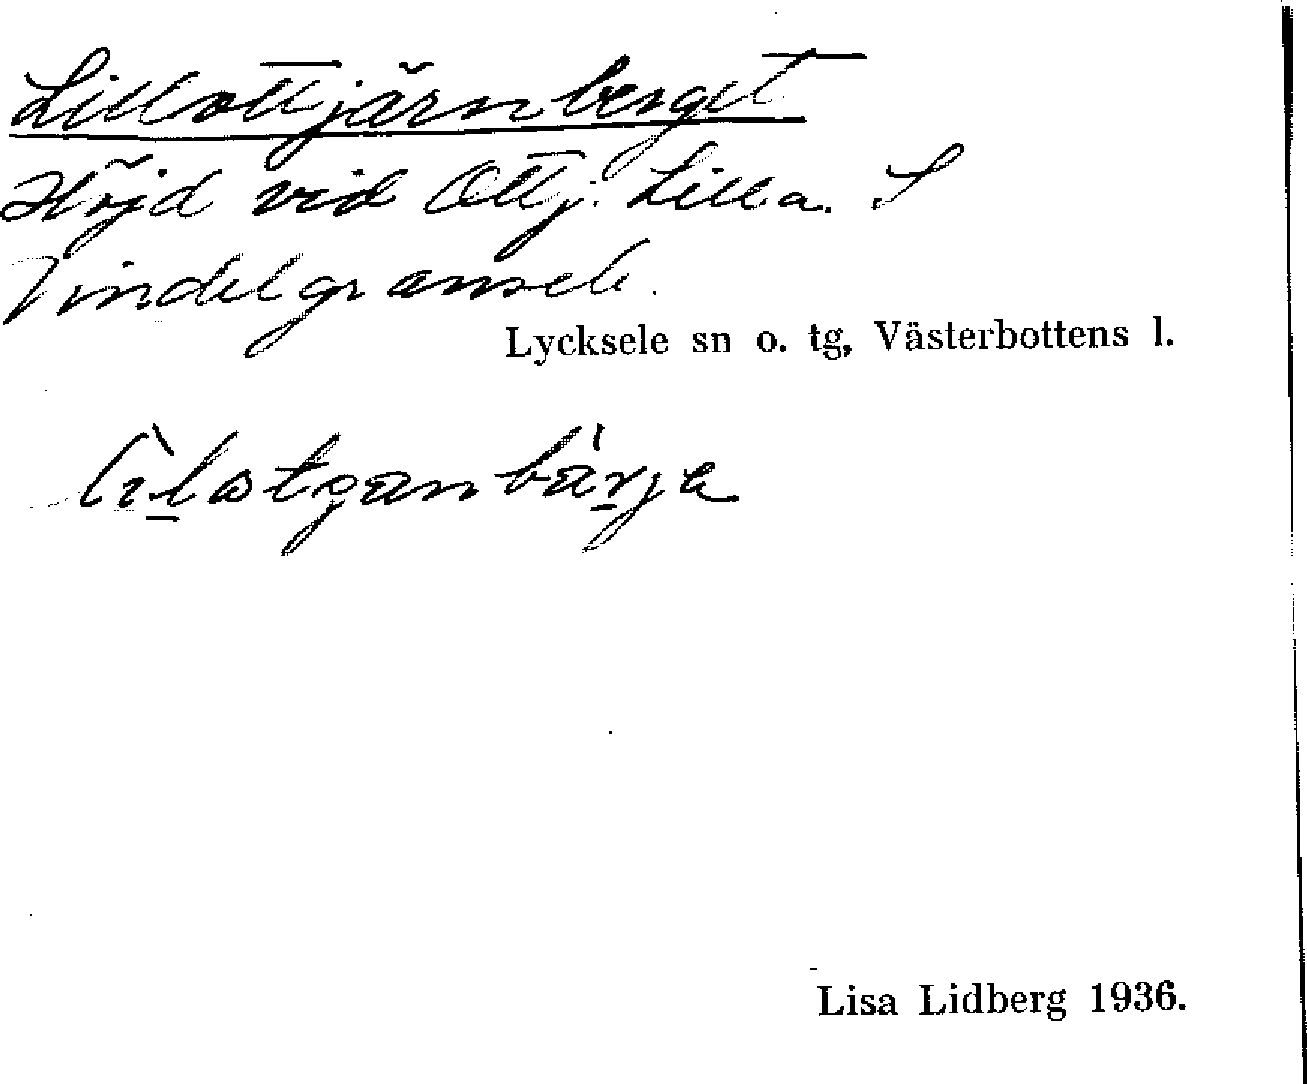 Lillottjärnberget
Höjd vid Ottj. Lilla. S
Vindelgransele.
Lycksele sn o. tg, Västerbottens l.
Lisa Lidberg 1936.